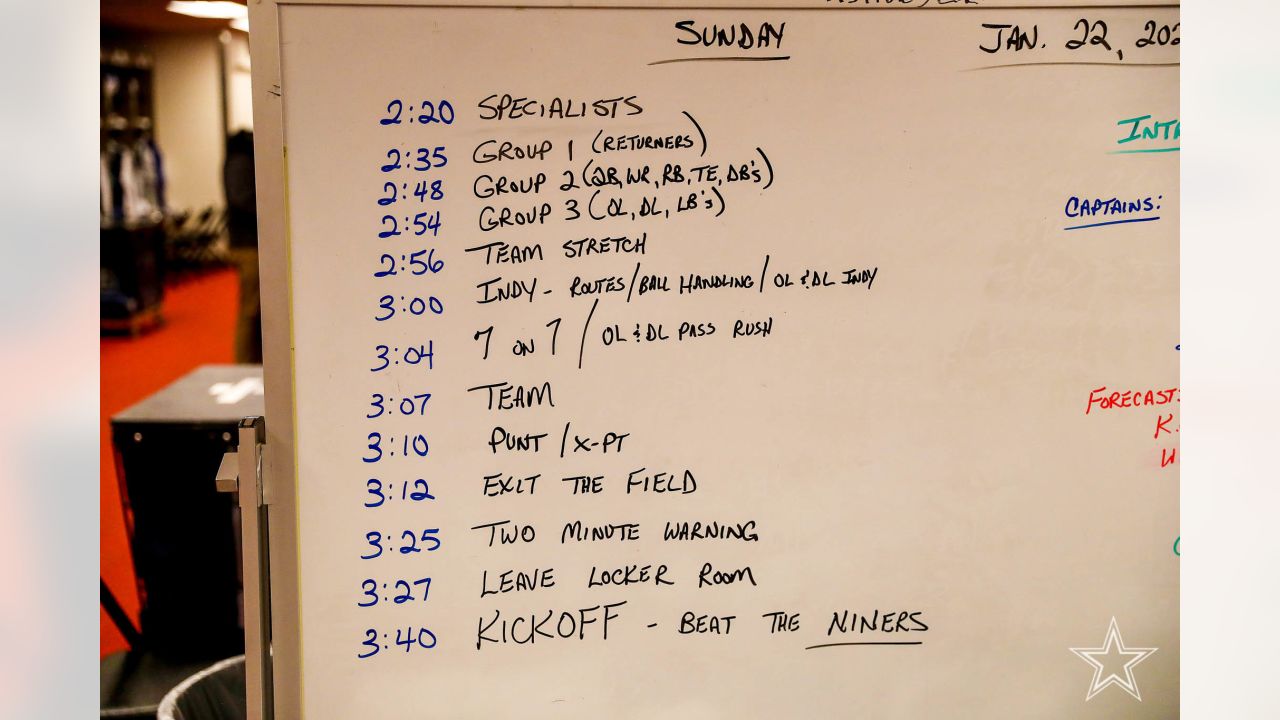 SUNDAY JAN. 22, 202
2:20 SPECIALISTS
2:35 GROUP 1 (RETURNERS)
2:48 GROUP 2 (QB, WR, RB, TE, DB'S)
2:54 GROUP 3 (OL, DL, LB'S)
2:56 TEAM STRETCH
3:00 INDY - ROUTES/BALL HANDLING/OL & DL INDY
3:04 7 ON 7 / OL & DL PASS RUSH
3:07 TEAM
3:10 PUNT / X-PT
3:12 EXIT THE FIELD
3:25 TWO MINUTE WARNING
3:27 LEAVE LOCKER ROOM
3:40 KICKOFF - BEAT THE NINERS
INTR
CAPTAINS:
FORECAST:
K.